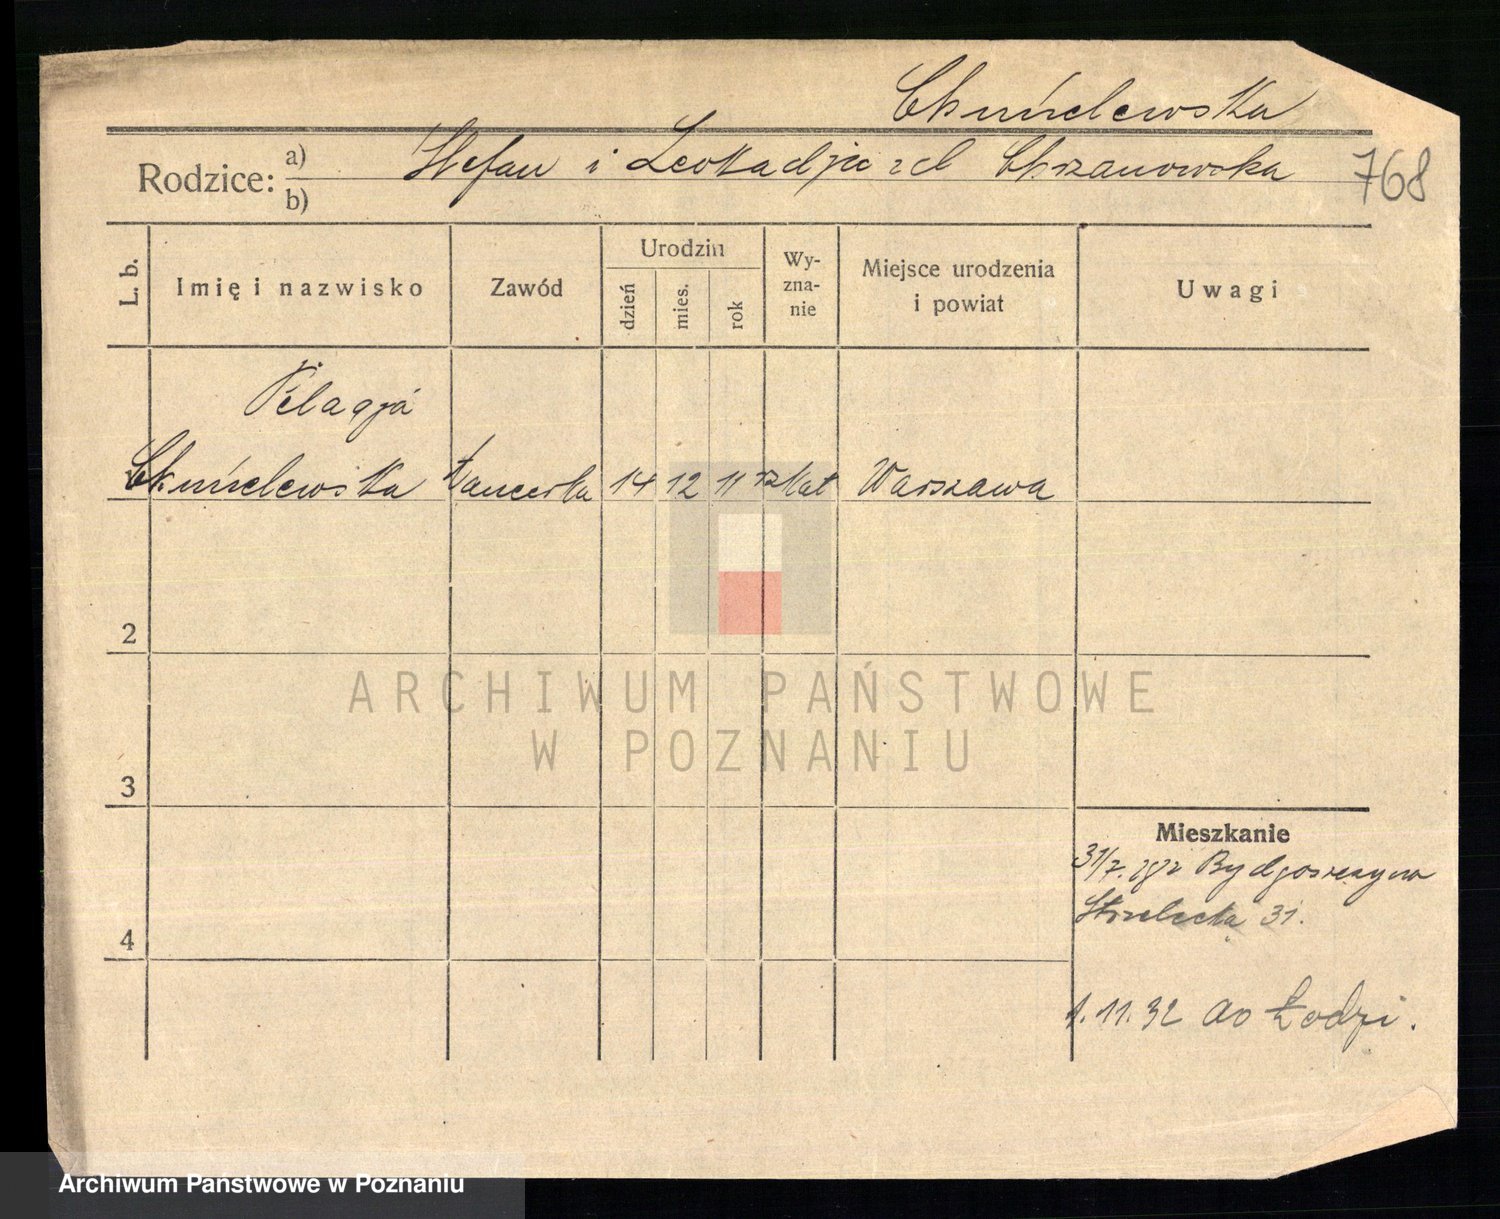 Chmielewska
Rodzice: a) Stefan i Leokadja zd Chrzanowska
b)
768
L. b.
Imię i nazwisko
Zawód
Urodzin
dzień
mies.
rok
Wy-
zna-
nie
Miejsce urodzenia
i powiat
Uwagi
Pelagja
Chmielewska tancerka 14 12 11 rzkat Warszawa
2
3
4
Mieszkanie
31/7. Bydgoszczy
Strzelecka 31.
1.11.32 do Łodzi.
ARCHIWUM PAŃSTWOWE
W POZNANIU
Archiwum Państwowe w Poznaniu